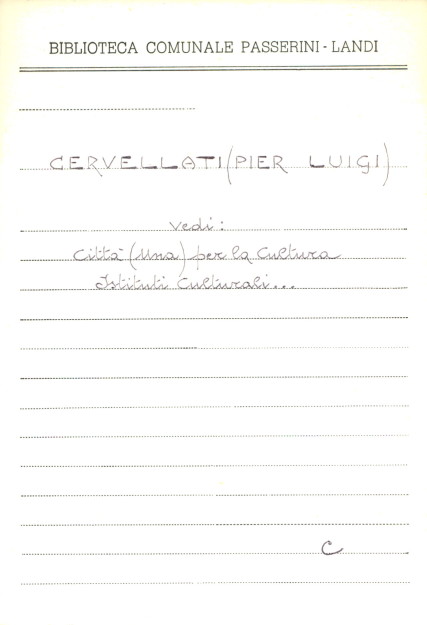 BIBLIOTECA COMUNALE PASSERINI - LANDI
CERVELLATI (PIER LUIGI)
Vedi:
Città (Una) per la Cultura
Istituti Culturali...
C